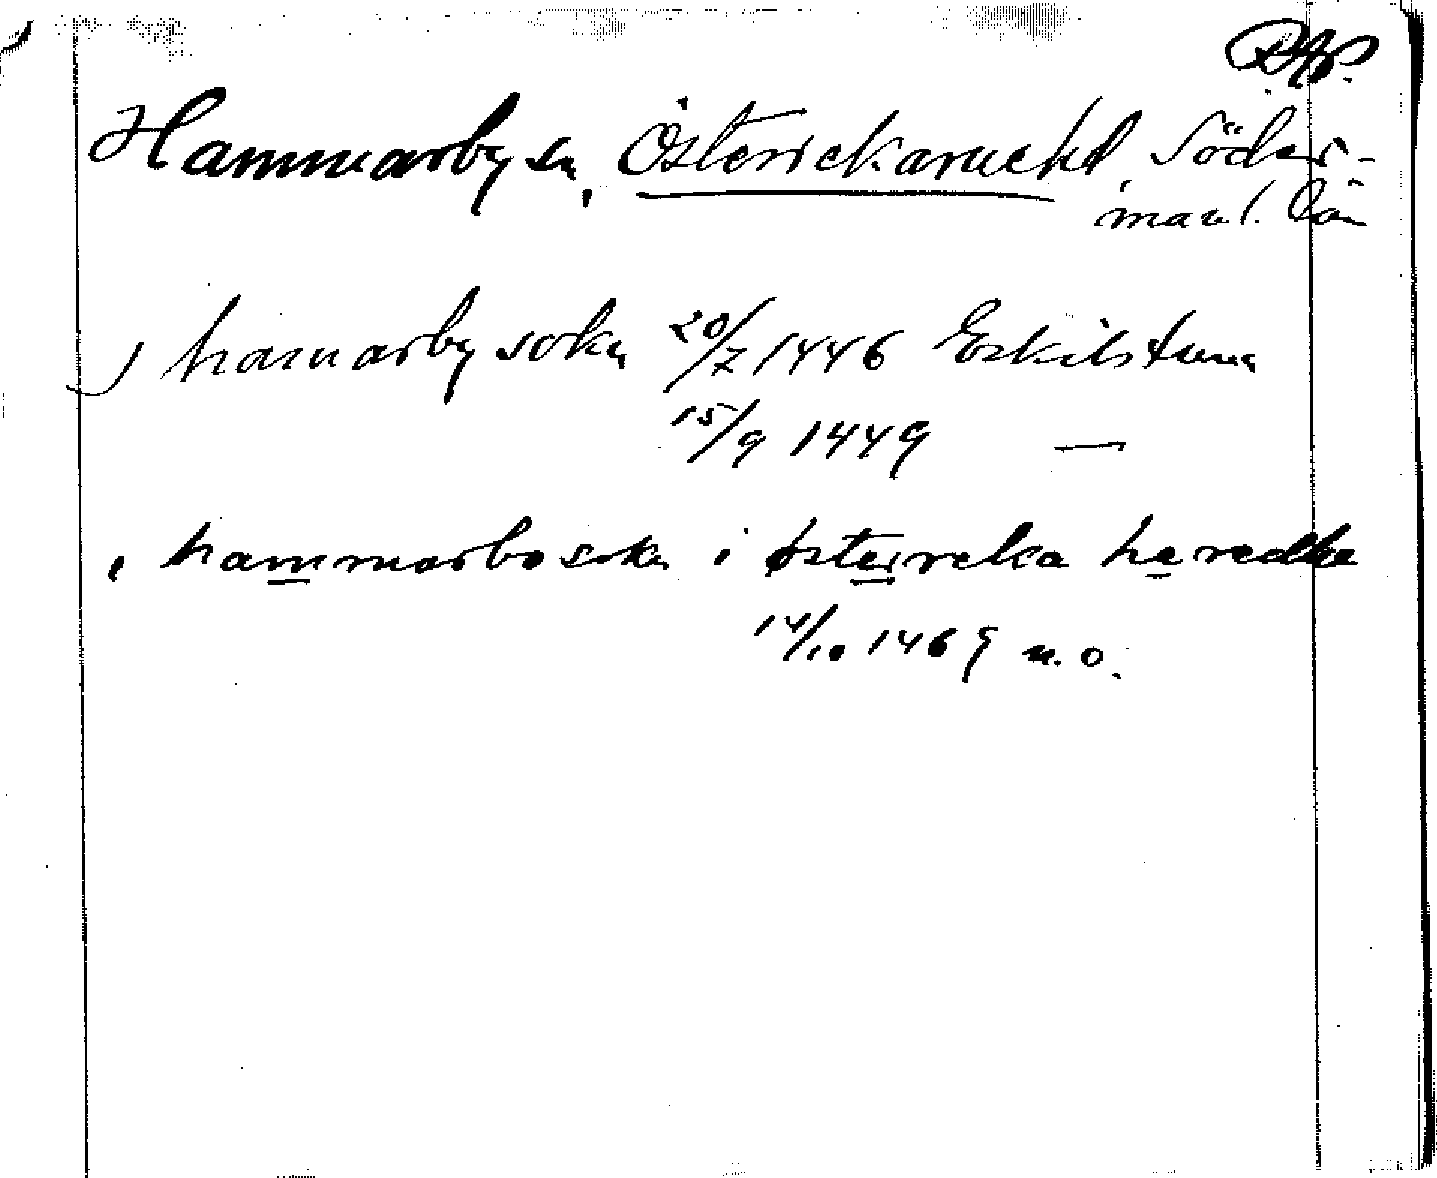 Hammarby sn, Österrekarne hd, Söder-
manl. län
j hamarby sokn 20/7 1446 Eskilstuna
15/9 1449 —
i hammarbo sokn i østerreka heredhe
14/10 1469 n. o.